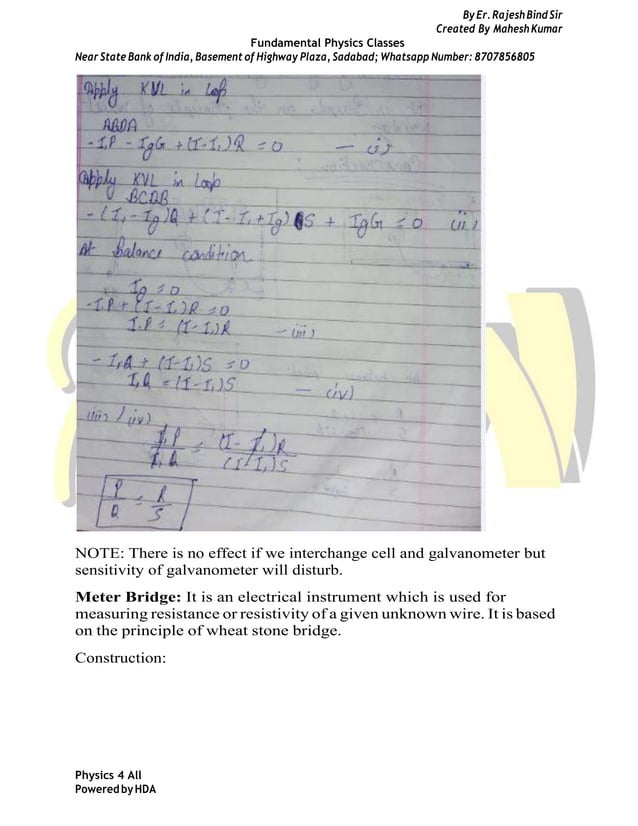 By Er. Rajesh Bind Sir
Created By Mahesh Kumar
Fundamental Physics Classes
Near State Bank of India, Basement of Highway Plaza, Sadabad; Whatsapp Number: 8707856805
Apply KVL in Loop
ABDA
- I1P - IgG + (I-I1)R = 0 — (i)
Apply KVL in Loop
BCDB
- (I1 - Ig)Q + (I - I1 + Ig)S + IgG = 0 (ii)
At balance condition
Ig = 0
- I1P + (I - I1)R = 0
I1P = (I - I1)R — (iii)
- I1Q + (I-I1)S = 0
I1Q = (I-I1)S — (iv)
(iii) / (iv)
I1P = (I - I1)R
I1Q (I-I1)S
P = R
Q S
NOTE: There is no effect if we interchange cell and galvanometer but
sensitivity of galvanometer will disturb.
Meter Bridge: It is an electrical instrument which is used for
measuring resistance or resistivity of a given unknown wire. It is based
on the principle of wheat stone bridge.
Construction:
Physics 4 All
Powered by HDA